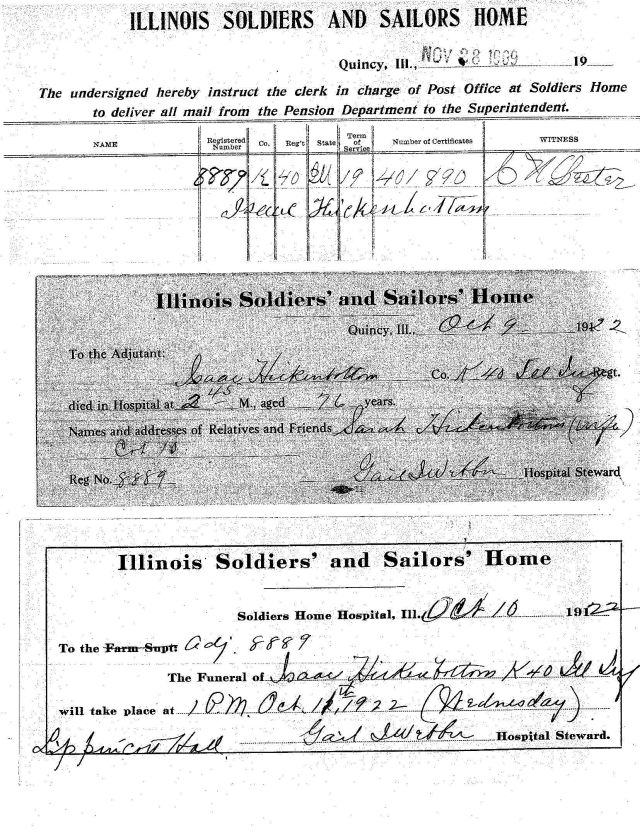 ILLINOIS SOLDIERS AND SAILORS HOME
Quincy, Ill., NOV 28 1969 19
The undersigned hereby instruct the clerk in charge of Post Office at Soldiers Home
to deliver all mail from the Pension Department to the Superintendent.
NAME Registered Number Co. Reg't State Term of Service Number of Certificates WITNESS
8889 K 40 Ill 19 401890 C N Lester
Isaac Hickenbottam
Illinois Soldiers' and Sailors' Home
Quincy, Ill., Oct 9 1922
To the Adjutant:
Isaac Hickenbottom Co. K 40 Ill Inf Regt.
died in Hospital at 2 45 M., aged 76 years.
Names and addresses of Relatives and Friends Sarah Hickenbottom (wife)
Cot 10
Reg No. 8889 Hospital Steward
Illinois Soldiers' and Sailors' Home
Soldiers Home Hospital, Ill. Oct 10 1922
To the Farm Supt: Adj. 8889
The Funeral of Isaac Hickenbottom K 40 Ill Inf
will take place at 1 P.M. Oct. 11th, 1922 (Wednesday)
Lippincott Hall Hospital Steward.